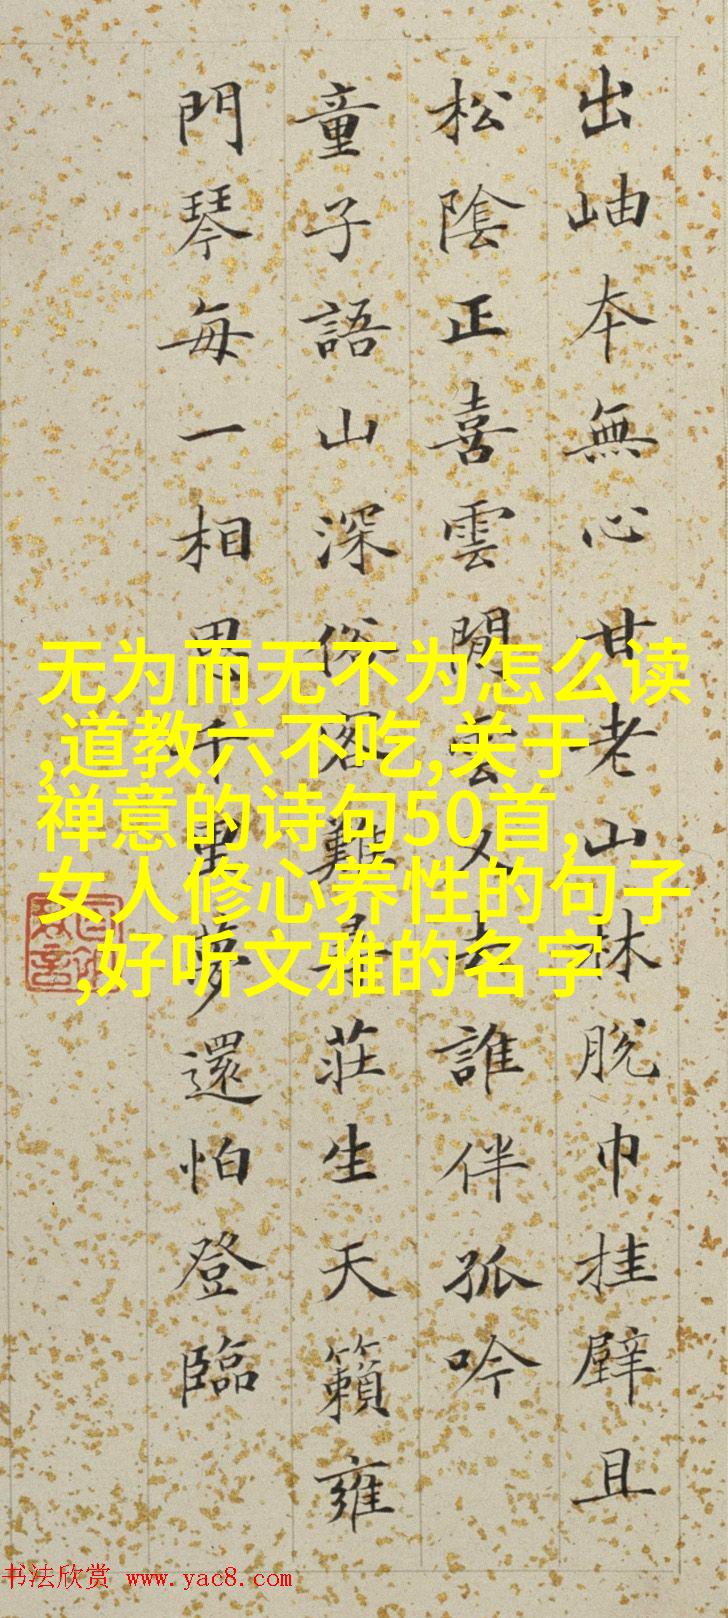 出岫本無心甘老山林脫巾挂壁且
松陰正喜雲閒雲又去誰伴孤吟
童子語山深俗客難尋莊生天籟雍
門琴每一相思千夢還怕登臨
无为而无不为怎么读
,道教六不吃,关于
禅意的诗句50首,
女人修心养性的句子
,好听文雅的名字
书法欣赏 www.yac8.com